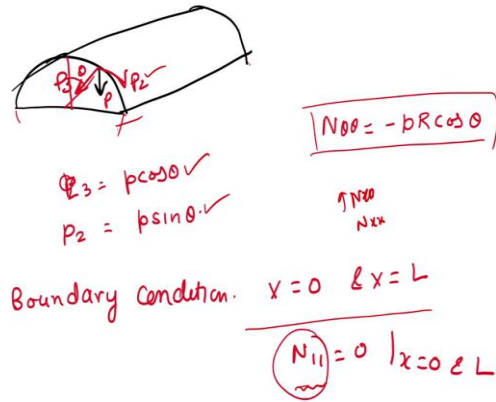 P3 θ P2 ✓
P
Nθθ = -pRcosθ
P3 = pcosθ ✓
P2 = psinθ. ✓
↑Nxθ
Nxx
Boundary Condition. x=0 & x=L
N11 = 0 |x=0 & L